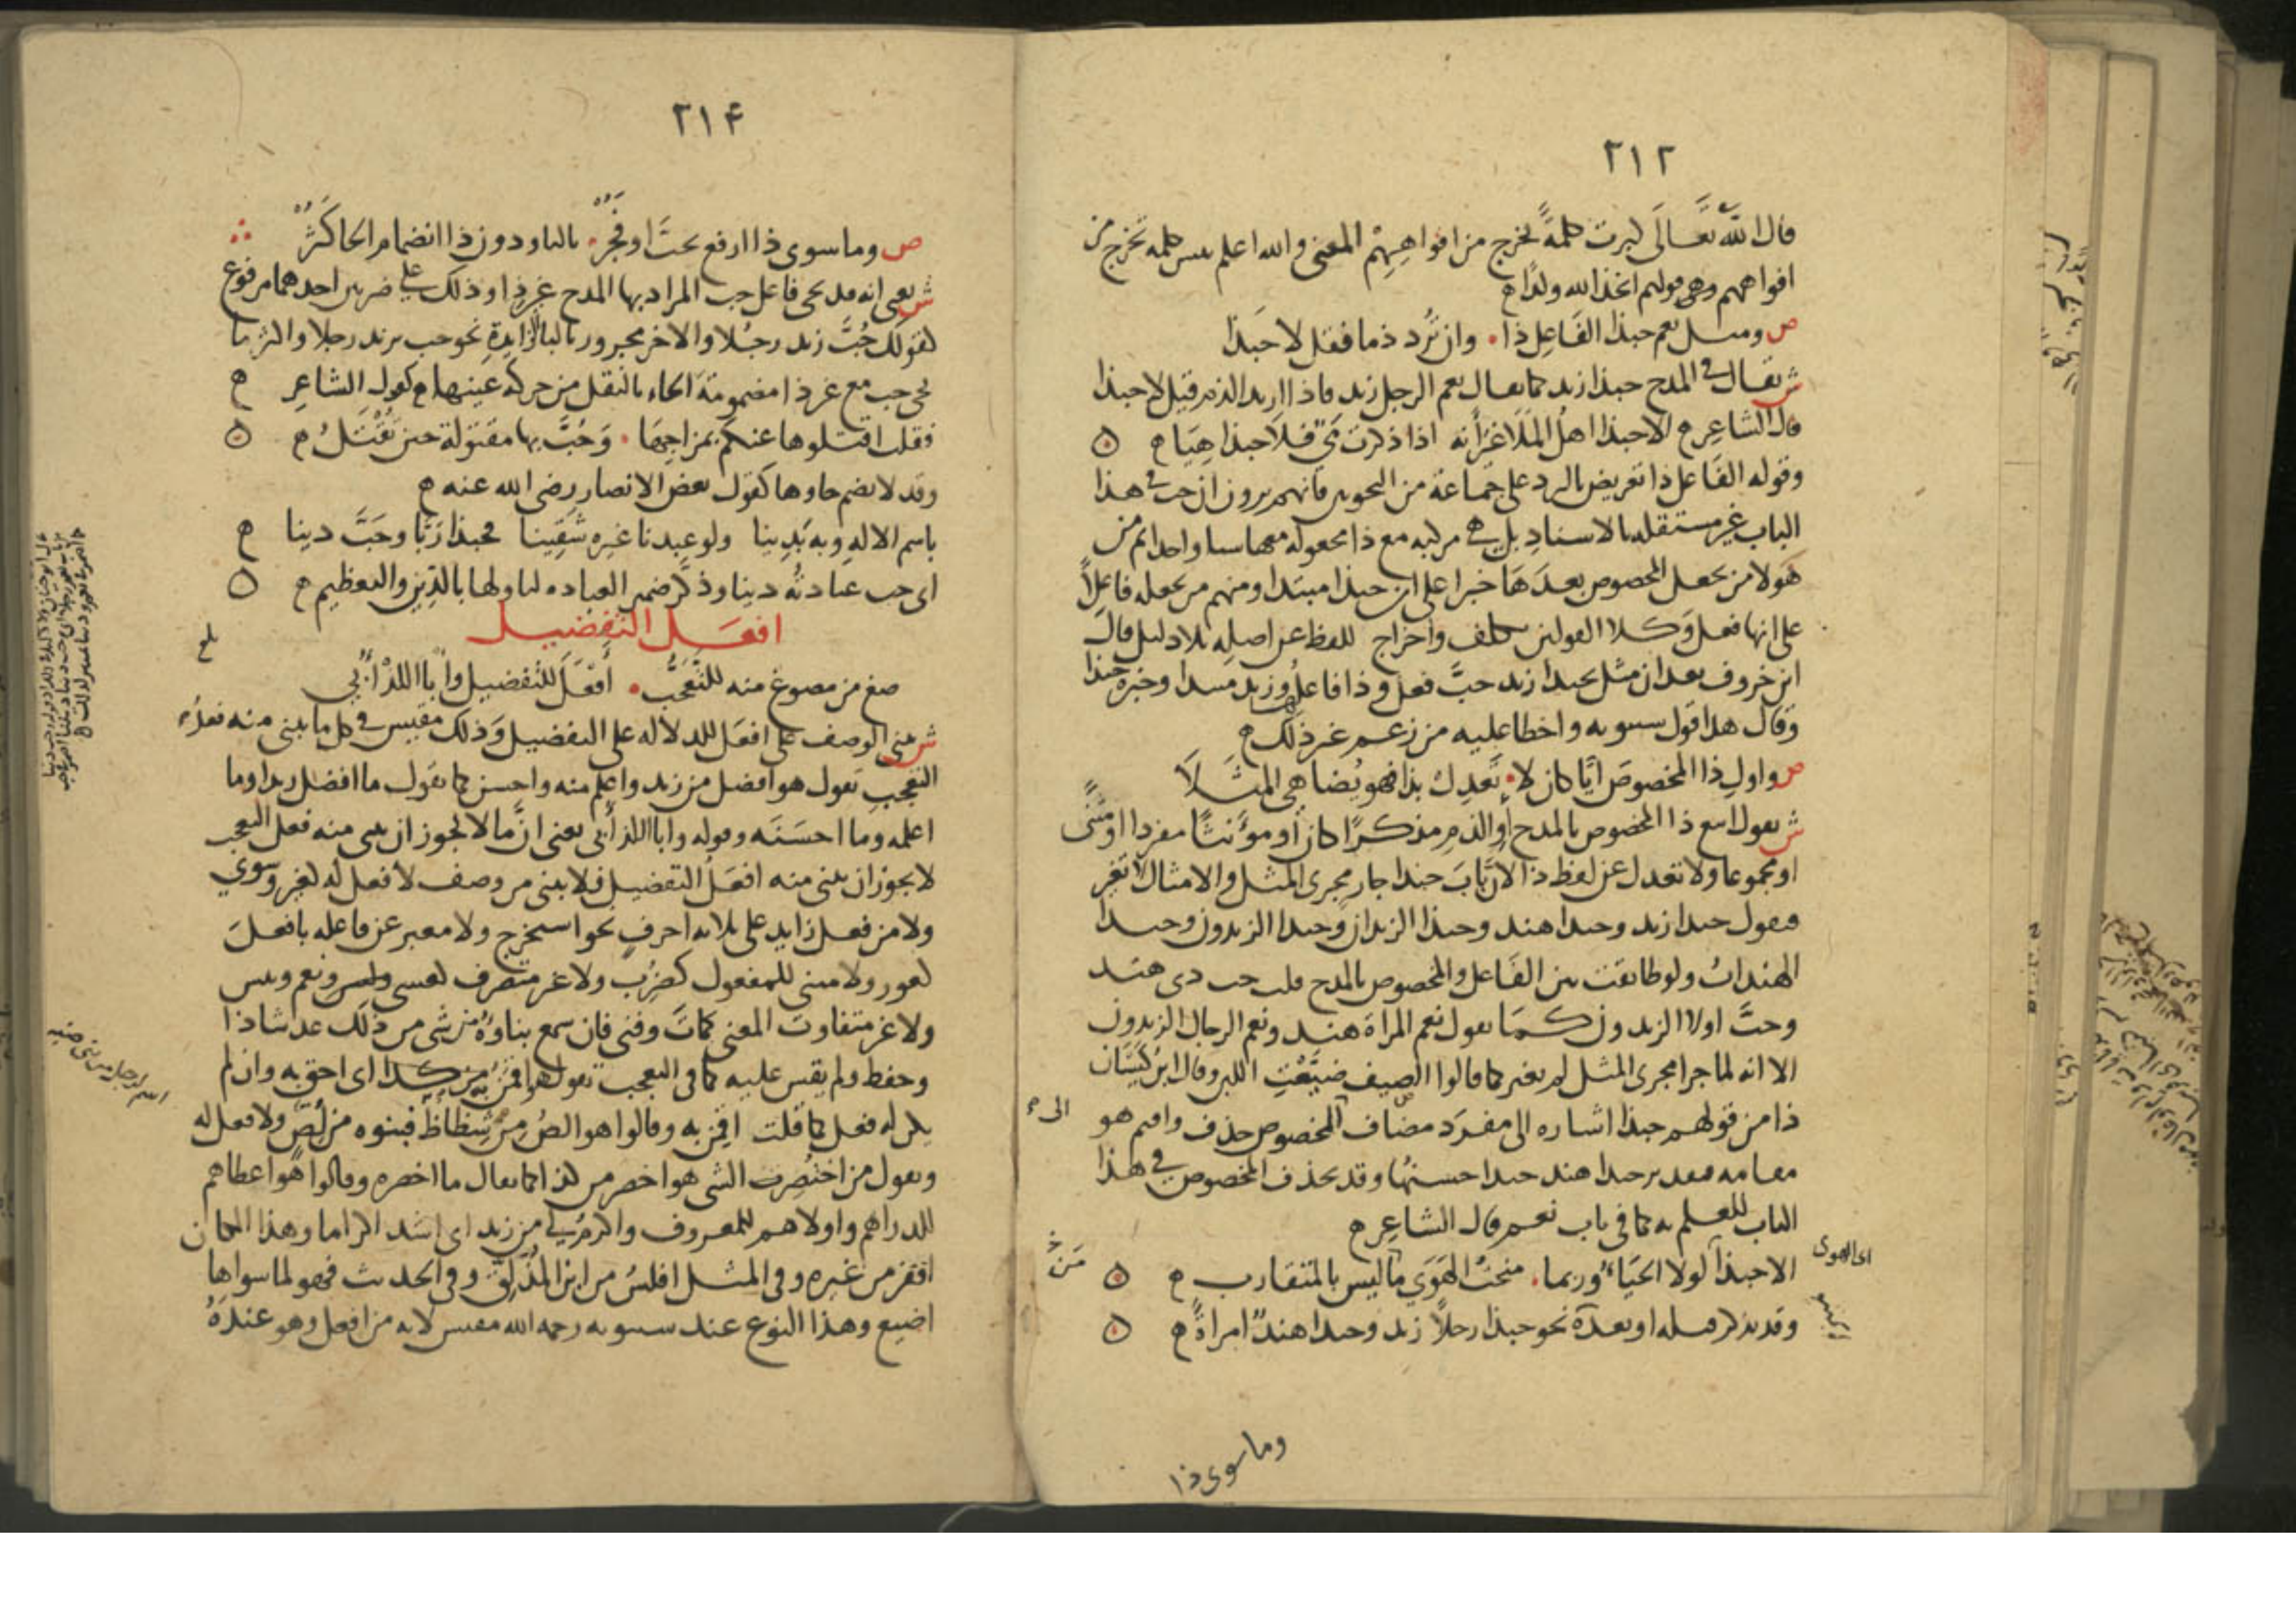 ٢١٢
قال الله تعالى كبرت كلمةً تخرج من افواهِهِمْ المعنى والله اعلم بىس كلمه تخرج من
افواههم وهى قولهم اتخذ الله ولدًا ه
ص ومثل نعم حبذا الفَاعِل ذا ۰ وان تُرد ذما فقل لا حَبَذا
ش يقال فى المدح حبذا زيد كما يقال نعم الرجل زيد فاذا اريد الذم قيل لا حبذا
قال الشاعِر ه الا حبذا اهلُ المَلَا غيرَ أنه اذا ذكرت مَيّ فلا حبذا هِيَا ه
وقوله الفَاعل ذا تعريض بالرد على جماعة من النحويين فانهم يرون ان حب فى هذا
الباب غير مستقله بالاسنادِ بل هى مركبه مع ذا مجعوله معها شيا واحدا ثم من
هَولا من يجعل المخصوص بعدَهَا خبرا على ان حبذا مبتدا ومنهم من يجعله فاعِلاً
على انها فعل وَكلا القولين تكلف واخراج للفظ عن اصلِه بلا دليل قال
ابن خروف بعد ان مثل بحبذا زيد حبَّ فعل وذا فاعلُها وزيد مبتدا وخبره حبذا
وقال هذا قول سيبويه واخطا عليه من زعم غير ذلك ه
ص واولِ ذا المخصوصَ ايًا كان لا ۰ تَعدِل بذا فهو يُضاهى المثَلاَ
ش يقول اتبع ذا المخصوص بالمدح أو الذم مذكرًا كان أو مؤنثًا مفردا او مثنًّى
او مجموعا ولا تعدل عن لفظ ذا لأن بَابَ حبذا جار مجرى المثل والامثال لا تغير
فتقول حبذا زيد وحبذا هند وحبذا الزيدان وَحبذا الزيدون وحبذا
الهنداتُ ولو طابقت بين الفَاعل والمخصوص بالمدح قلت حب ذى هند
وحبَّ اولاا الزيدون كمَا تقول نعم المراة هند ونعم الرجال الزيدون
الا انه لما جرا مجرى المثل لم يغير كما قالوا الصيف ضيَّعْتِ اللبن وقال ابن كَيْسَان
ذا من قولهم حبذا اشاره الى مفرَد مضاف الى المخصوص حذف واقيم هو
مقامه فتقدير حبذا هند حبذا حسنهُا وقد يحذف المخصوص فى هذا
الباب للعلم به كما فى باب نعم قال الشاعِر ه
الا حبذا لولا الحيَاءُ وربما ۰ منحتُ الهَوَي مَا ليس بالمتقارب ه
وقد يذكر قبله او بعدَهُ نحو حبذا رجلاً زيد وحبذا هندٌ امراةً ه
الى
اى الهوى
مَن خ
وما سوى ذا
٢١۴
ص وما سوى ذا ارفع بحبَّ اوفجُرّ ۰ بالبا ودون ذا انضمام الحا كَثُرْ
ش يعنى انه قد يجى فاعل حب المراد بها المدح غير ذا وذلك على ضربين احدهما مرفوع
كقولك حُبَّ زيد رجُلا والاخر مجرور بالبا الزايدةِ نحو حب بزيد رجلا واكثر ما
يجى حب مع غير ذا مضمومةَ الحاء بالنقل من حركه عَينها ه كقول الشاعِر ه
فقلت اقتلوها عنكم بمزاجِهَا ۰ وَحُبَّ بها مقتولة حين تُقْتَلُ ه
وقد لا تضم حاوها كقول بعض الانصار رضى الله عنه ه
باسم الالهِ وبه بَدِينا ولو عبدنا غيره شَقِينا فحبذا رَبًّا وحَبَّ دينا ه
اى حب عبادتُه دينا وذكَّر ضمير العباده لتاولها بالدِّين والتعظيم ه
افعَل التفضيل
صغ من مصوغ منه للتعَجُّب ۰ أَفْعَلَ للتفضيل وابا اللذْ أُبِي
ش يبنى الوصف على افعَل للدلاله على التفضيل وَذلك مقيس فى كل ما يبنى منه فعلُ
التعجبِ تقول هو افضل من زيد واعلم منه واحسن كما تقول ما افضل زيدا وما
اعلمه وما احسَنَه وقوله وابا اللذ أُبي يعنى انَّ ما لا يجوز ان يبنى منه فعل التعجب
لا يجوز ان يبنى منه افعَلُ التفضيل فلا يبنى من وصف لا فعل له كغير وسوي
ولا من فعل زايد على ثلاثه احرفٍ نحو استخرج ولا معبر عن فاعله بافعلَ
كعور ولا مبنى للمفعول كضُرِب ولا غير متصرف كعسى وليس ونعم وبيس
ولا غير متفاوت المعنى كمَاتَ وفنى فان سمع بناوُهُ من شى من ذلك عد شاذا
وحفظ ولم يقس عليه كما فى التعجب تقول هو اقمَنُ من كذا اى احق به وان لم
يكن له فعل كما قلت اقمِن به وقالوا هو الصُ مِنْ شِظاظ فبنوه من لُصّ ولا فعل له
وتقول من اختُصِرت الشى هو اخصر من كذا كما يقال ما اخصره وقالوا هُو اعطاهم
للدراهم واولاهم للمعروف واكرمُ لي من زيد اى اشد اكراما وهذا المكان
اقفر من غيره وفى المثل افلسُ من ابن المُذَلَّق وفى الحديث فهو لما سواهِا
اضيع وهذا النوع عند سيبويه رحمه الله مقيس لانه من افعل وهو عندَهُ